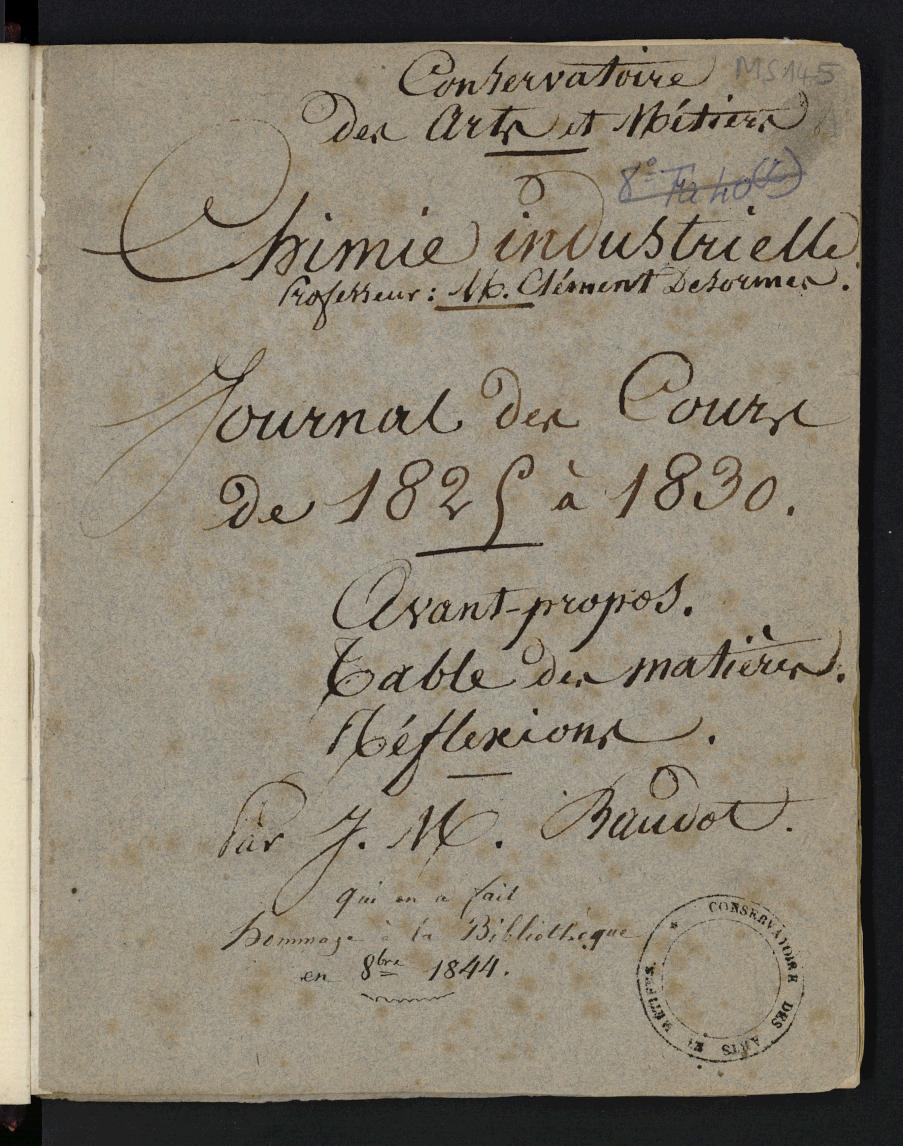 Conservatoire
MS 145
des Arts et Métiers
8° Fa 40 (6)
Chimie industrielle
Professeur : M. Clément Desormes.
Journal des Cours
de 1825 à 1830.
Avant-propos.
Table des matières.
Réflexions.
Par J. M. Baudot.
qui en a fait
hommage à la Bibliothèque
en 8bre 1844.
CONSERVATOIRE DES ARTS ET MÉTIERS.